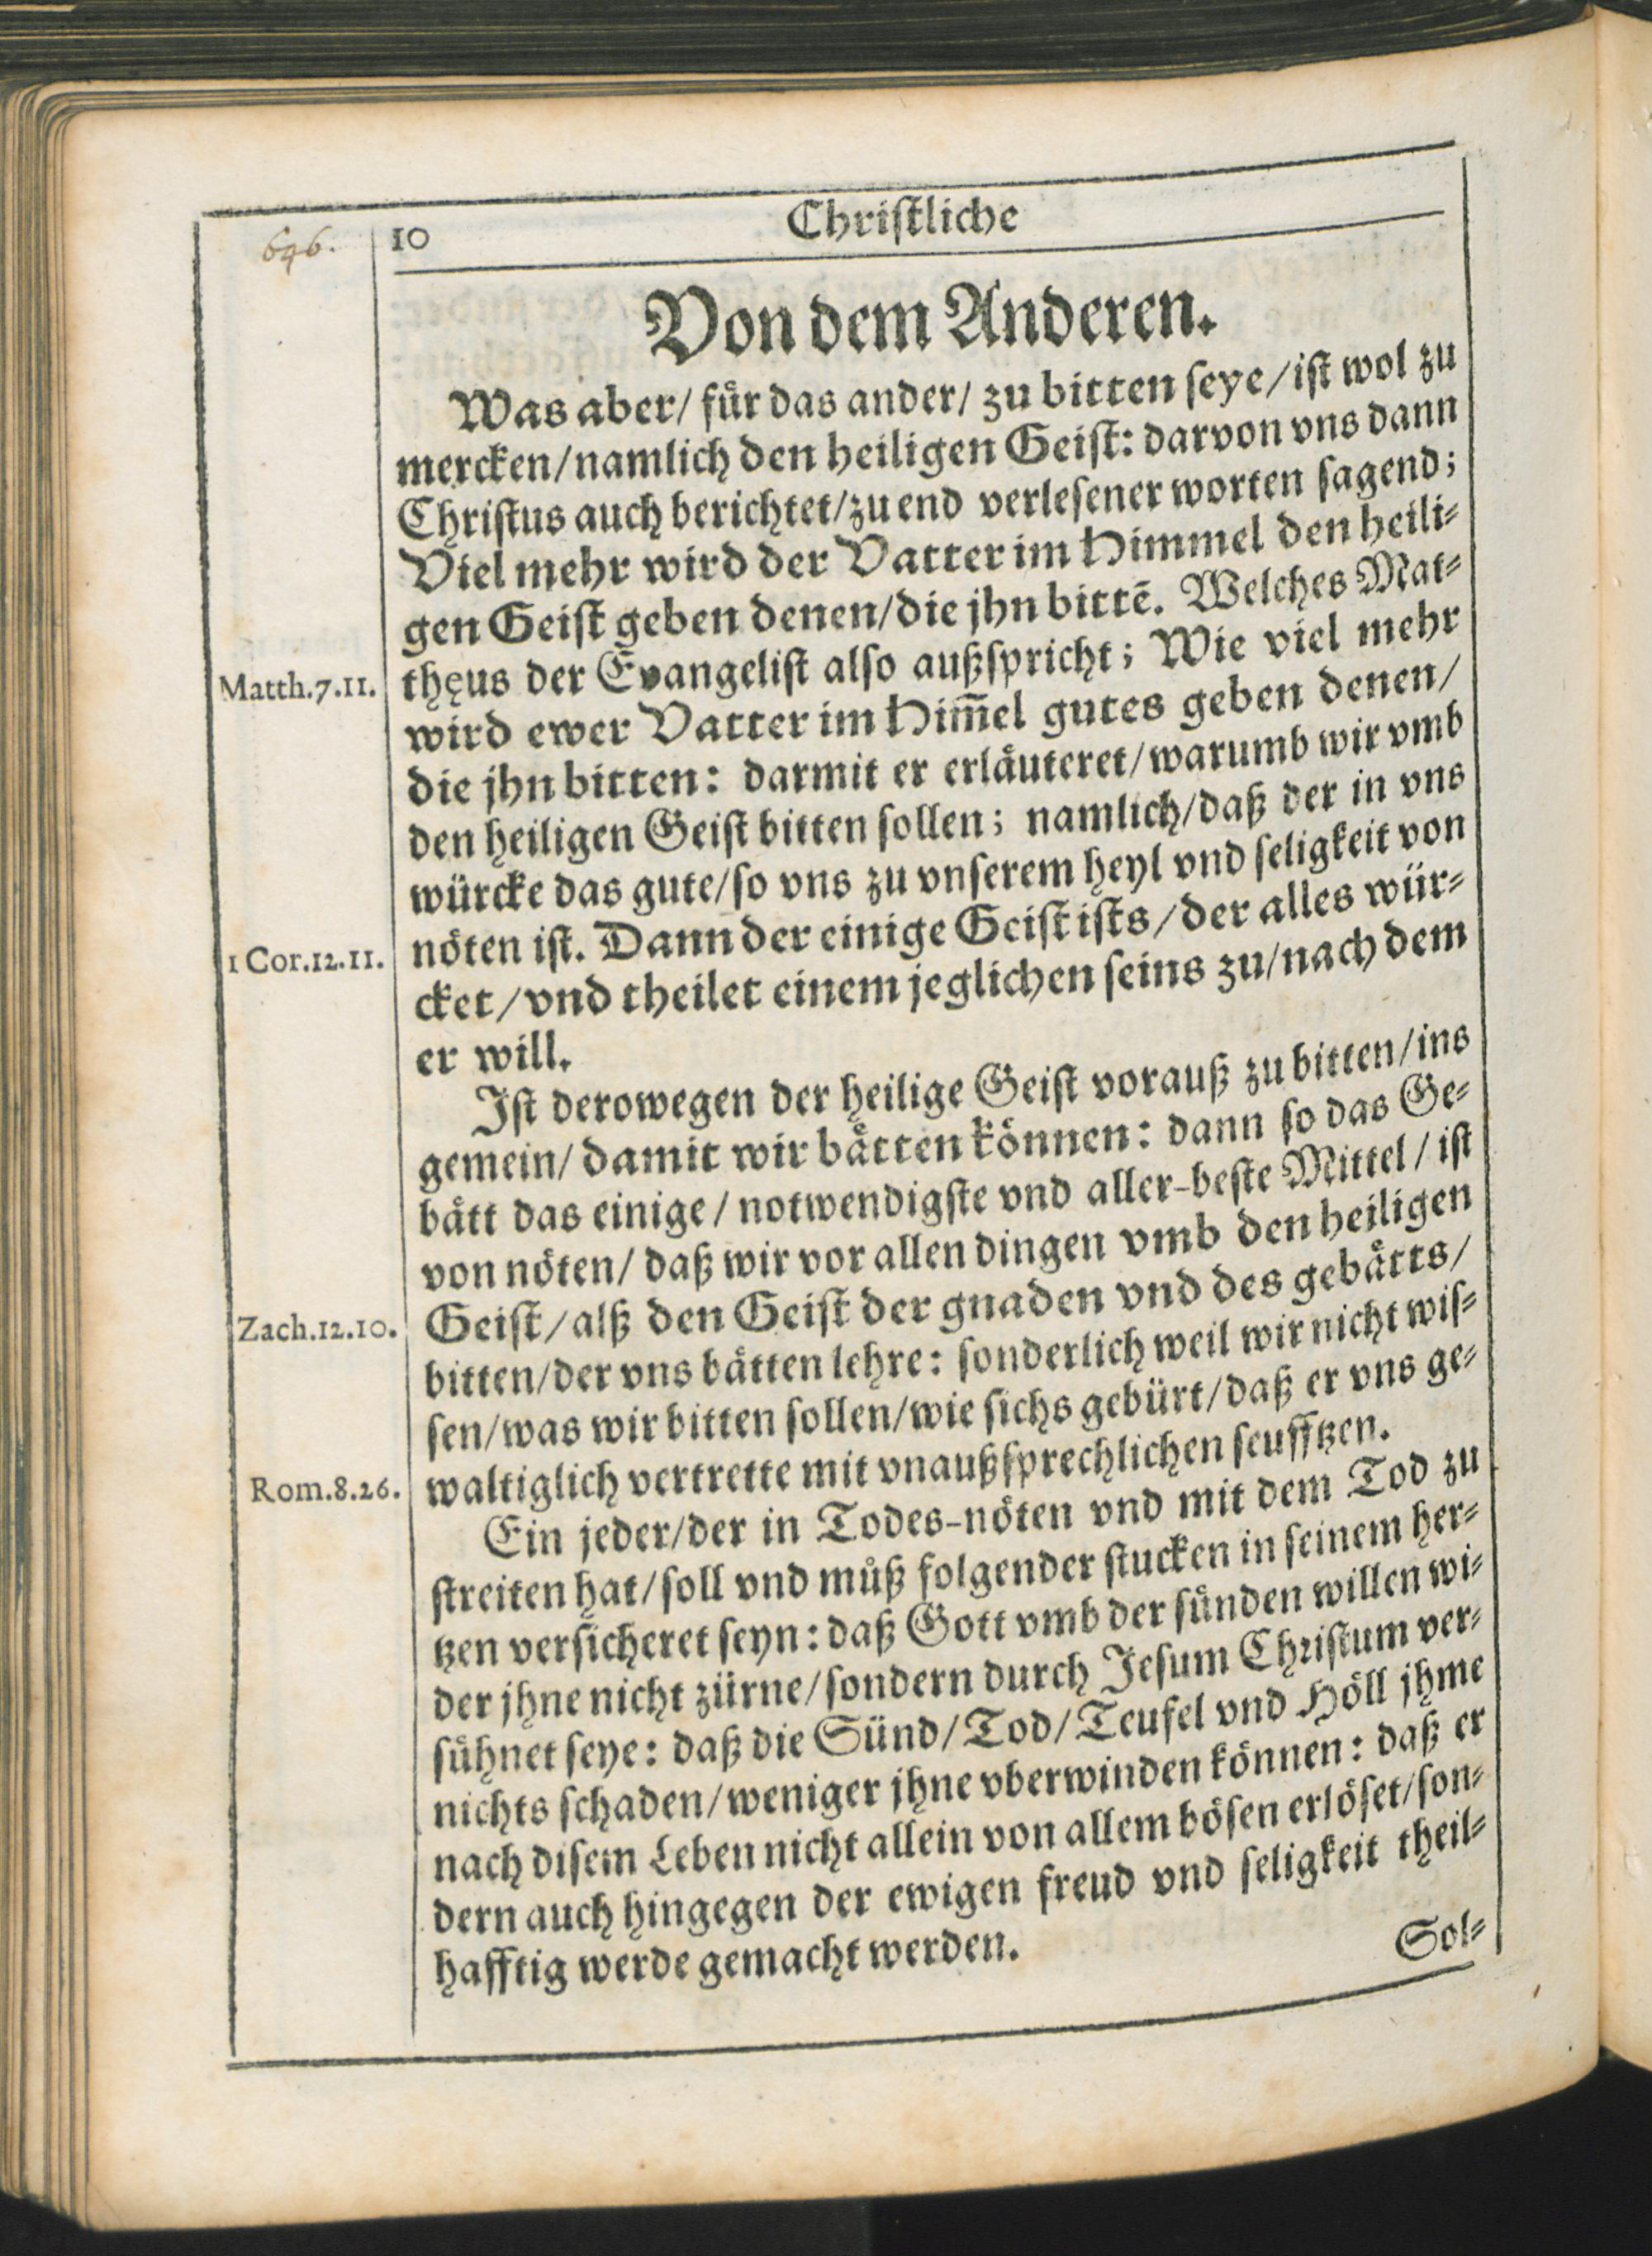 696.
10
Christliche
Von dem Anderen.
Was aber/ fuͤr das ander/ zu bitten ſeye/ iſt wol zu
mercken/ namlich den heiligen Geiſt: darvon vns dann
Chriſtus auch berichtet/ zu end verleſener worten ſagend;
Viel mehr wird der Vatter im Himmel den heili⸗
gen Geiſt geben denen/ die jhn bittẽ. Welches Mat⸗
Matth.7.11.
thęus der Evangeliſt alſo außſpricht; Wie viel mehr
wird ewer Vatter im Him̃el gutes geben denen/
die jhn bitten: darmit er erlaͤuteret/ warumb wir vmb
den heiligen Geiſt bitten ſollen; namlich/ daß der in vns
wuͤrcke das gute/ ſo vns zu vnſerem heyl vnd ſeligkeit von
1 Cor.12.11.
noͤten iſt. Dann der einige Geiſt iſts/ der alles wuͤr⸗
cket/ vnd theilet einem jeglichen ſeins zu/ nach dem
er will.
Iſt derowegen der heilige Geiſt vorauß zu bitten/ ins
gemein/ damit wir baͤtten koͤnnen: dann ſo das Ge⸗
baͤtt das einige/ notwendigſte vnd aller-beſte Mittel/ iſt
von noͤten/ daß wir vor allen dingen vmb den heiligen
Zach.12.10.
Geiſt/ alß den Geiſt der gnaden vnd des gebaͤtts/
bitten/ der vns baͤtten lehre: ſonderlich weil wir nicht wiſ⸗
ſen/ was wir bitten ſollen/ wie ſichs gebuͤrt/ daß er vns ge⸗
Rom.8.26.
waltiglich vertrette mit vnaußſprechlichen ſeufftzen.
Ein jeder/ der in Todes-noͤten vnd mit dem Tod zu
ſtreiten hat/ ſoll vnd muͦß folgender ſtucken in ſeinem her⸗
tzen verſicheret ſeyn: daß Gott vmb der ſuͤnden willen wi⸗
der jhne nicht zuͤrne/ ſondern durch Jeſum Chꝛiſtum ver⸗
ſuͤhnet ſeye: daß die Suͤnd/ Tod/ Teufel vnd Hoͤll jhme
nichts ſchaden/ weniger jhne vberwinden koͤnnen: daß er
nach diſem Leben nicht allein von allem boͤſen erloͤſet/ ſon⸗
dern auch hingegen der ewigen freud vnd ſeligkeit theil⸗
hafftig werde gemacht werden.
Sol⸗